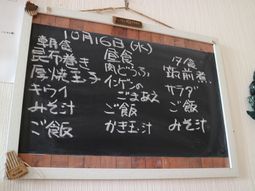 10月16日(水)
朝食
昆布巻き
厚焼玉子
キウイ
みそ汁
ご飯
昼食
肉どうふ
インゲンの
ごまあえ
ご飯
かき玉汁
夕食
筑前煮
サラダ
ご飯
みそ汁